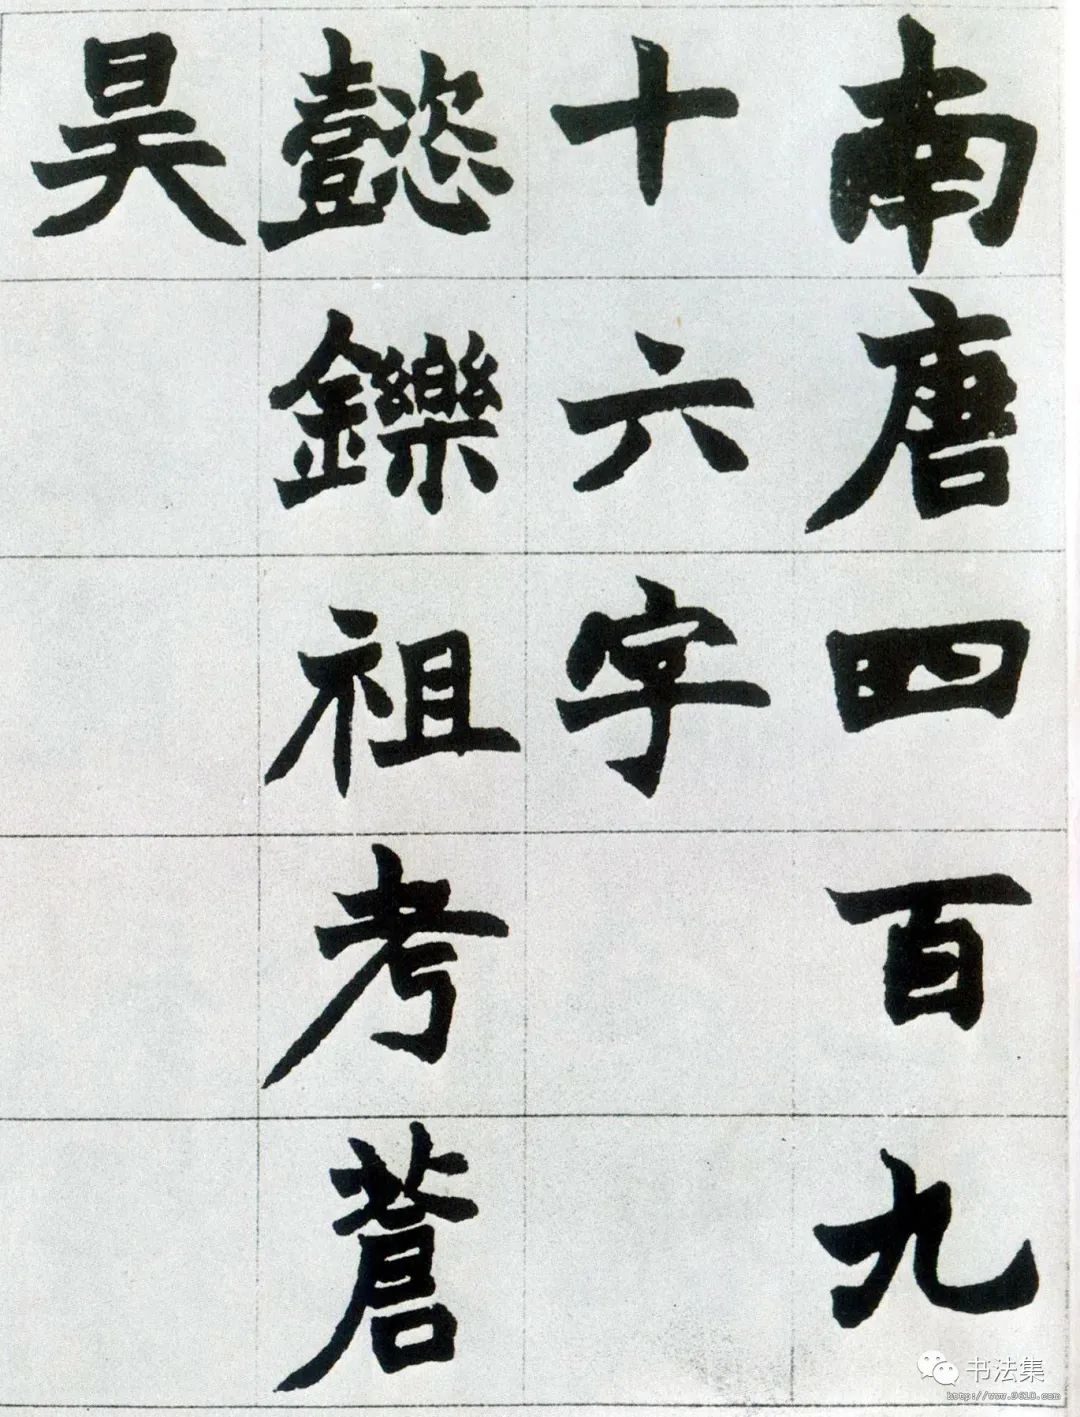 南唐四百九
十六字
懿鑠祖考蒼
昊
书法集
http://www.9610.com